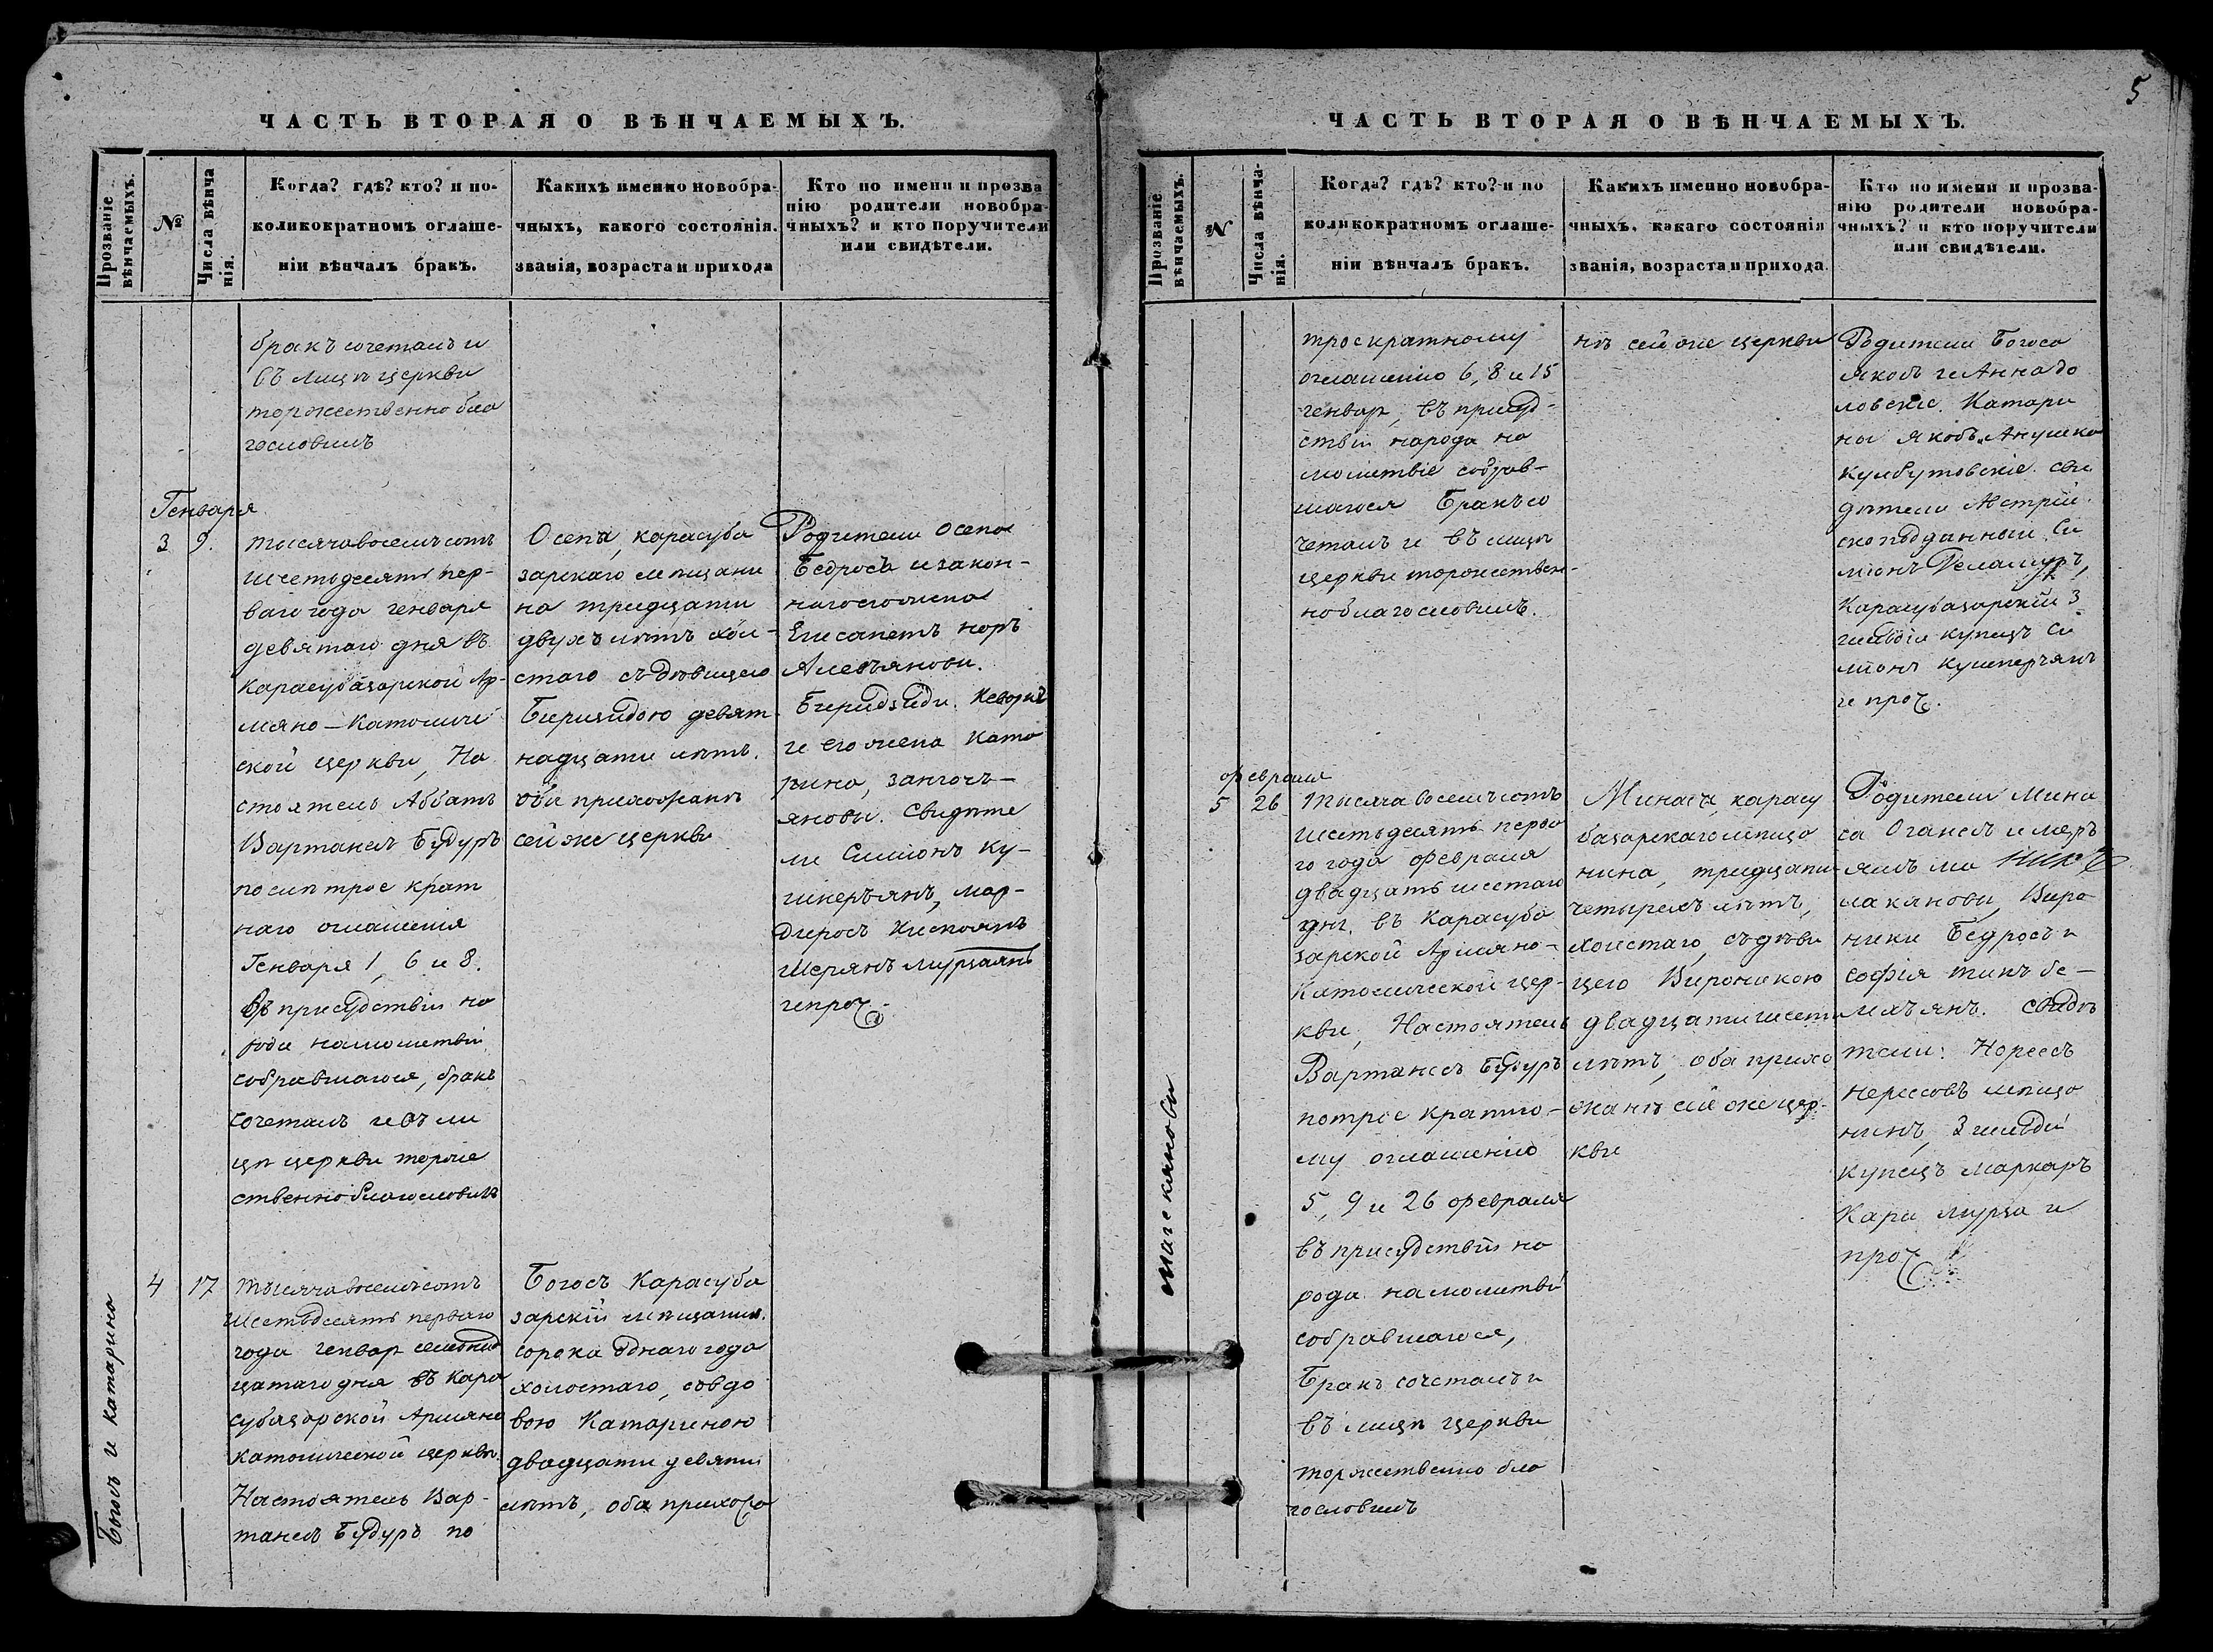 ЧАСТЬ ВТОРАЯ О ВѢНЧАЕМЫХЪ.
Прозваніе
вѣнчаемыхъ.
№
Числа вѣнча
нія.
Когда? гдѣ? кто? и по-
коликократномъ оглаше-
ніи вѣнчалъ бракъ.
Какихъ именно новобра-
чныхъ, какого состоянія.
званія, возраста и прихода
Кто по имени и прозва
нію родители новобра-
чныхъ? и кто поручители
или свидѣтели.
бракъ сочеталъ и
въ лицѣ церкви
торжественно бла
гословилъ
Генваря
3 9.
тысячавосемъсотъ
шестьдесятъ пер-
ваго года генваря
девятаго дня въ
Карасубазарской Ар-
мяно-Католиче
ской церкви, На
стоятель Аббатъ
Вартанесъ Будуръ
послѣ трое крат
наго оглашенія
Генваря 1, 6 и 8.
въ присудствіи на
рода намолитвіи
собравшагося, бракъ
сочеталъ и въ ли
цѣ церкви торже
ственно благословилъ
Осепа, карасуба
зарскаго мѣщани
на тридцати
двухъ лѣтъ хол-
стаго съ дѣвицею
Бирицидою девят
надцати лѣтъ.
оба прихожанѣ
сей же церкви
Родители Осепа
Бедросъ и закон-
наго жена
Елисапетъ норъ
Алевъянови.
Бгеридзиди. Кеворкъ
и его жена Ката
рина, зангочъ-
янови. Свидѣте
ли Симіонъ Ку-
шнеръянъ, Мар-
дгеросъ Киспоянъ
Шерянъ мурзаянъ
и проч.
Богосъ и катарина
4 17
тысячавосемьсотъ
шестьдесятъ перваго
года генвар семьнад
цатаго дня въ Кара
субазарской Армяно
католической церкви.
Настоятель Вар-
танесъ Будуръ по
Богосъ Карасуба
зарскій мѣщанин.
сорока однаго года
холостаго, съ вдо
вою Катариною
двадцати девяти
лѣтъ, оба прихожа
5
ЧАСТЬ ВТОРАЯ О ВѢНЧАЕМЫХЪ.
Прозваніе
вѣнчаемыхъ.
№
Числа вѣнча-
нія.
Когда? гдѣ? кто? и по
коликократномъ оглаше-
ніи вѣнчалъ бракъ.
Какихъ именно новобра-
чныхъ, какаго состоянія
званія, возраста и прихода.
Кто по имени и прозва-
нію родители новобра-
чныхъ? и кто поручители
или свидѣтели.
троекратному
оглашенію 6, 8 и 15
генвар, въ присуд-
ствіи народа на
молитвіе собрав-
шагося Бракъ со
четалъ и въ лицѣ
церкви торжествен-
но благословилъ.
нѣ сей же церкви
Родители Богоса
Якобъ и Аннадо
ловскіе. Катари
ны Якобъ и Анушка
Кумбутовскіе. сви
дѣтели Австрій
ско подданный Си
міонъ Деламуръ,
Карасубазарскій 3
гильдіи купецъ Си
міонъ Кушнерьянъ
и проч.
Магекянови
февраля
5 26
Тысяча восемъсотъ
шестьдесятъ перва
го года февраля
двадцать шестаго
дня. въ Карасуба
зарской Армяно-
Католической цер-
кви, Настоятель
Вартанесъ Будуръ
потрое кратно-
му оглашенію
5, 9 и 26 февраля
въ присудствіи на
рода намолитвѣ
собравшагося,
Бракъ сочеталъ и
въ лицѣ церкви
торжественно бла
гословилъ
Минаса, карасу
базарскаго мѣща
нина, тридцати
четырехъ лѣтъ,
холстаго, съ дѣви
цею Вироникою
двадцати шести
лѣтъ, оба прихо
жанѣ сей же цер-
кви
Родители Мина
са Оганесъ и мар
іамъ ма
лакянови, Виро
ники Бедросъ и
Софія тинъ бе-
лахъянъ. Свидѣ
тели: Норсесъ
Нерсесовъ мѣща
нинъ, 3 гильдіи
купецъ Маркаръ
Кара мурза и
проч